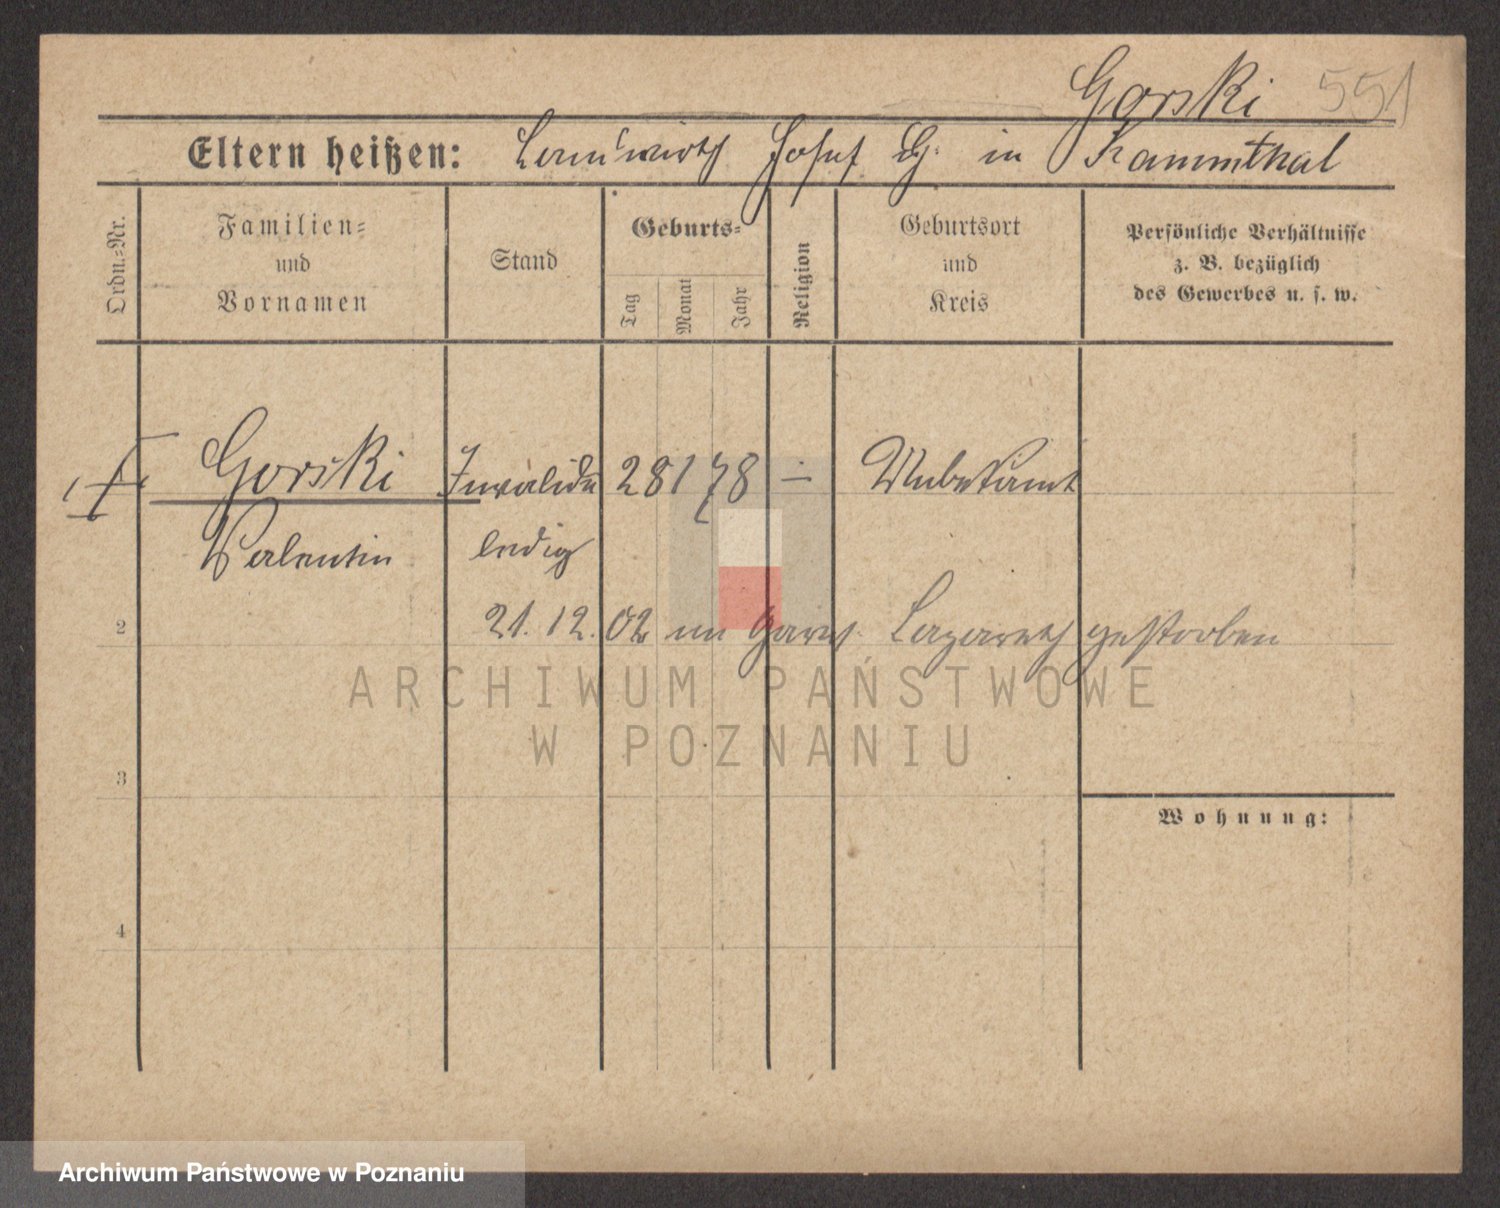 Gorski 551
Eltern heißen: Landwirth Josef G. in Kammthal
Ordn.=Nr.
Familien=
und
Vornamen
Stand
Geburts=
Tag
Monat
Jahr
Religion
Geburtsort
und
Kreis
Persönliche Verhältnisse
z. B. bezüglich
des Gewerbes u. s. w.
Gorski Invalide 28 1 78 – Unbekannt
Valentin ledig
2
21. 12. 02 im Garns. Lazareth gestorben
ARCHIWUM PAŃSTWOWE
W POZNANIU
3
Wohnung:
4
Archiwum Państwowe w Poznaniu